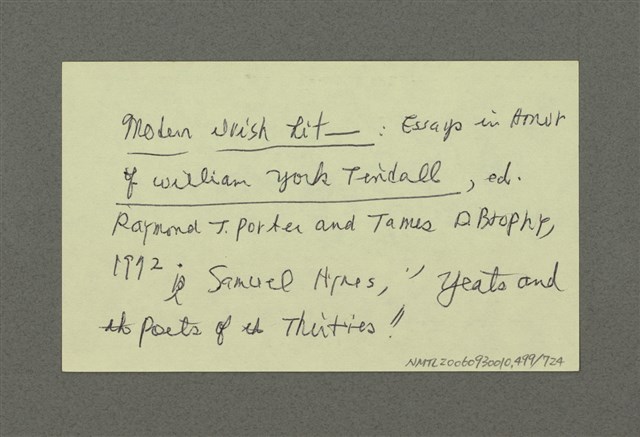 Modern Irish Lit— : Essays in Honor
of William York Tindall, ed.
Raymond J. Porter and James D. Brophy,
1972; Samuel Hynes, "Yeats and
the Poets of the Thirties"
NMTL20060930010,499/724